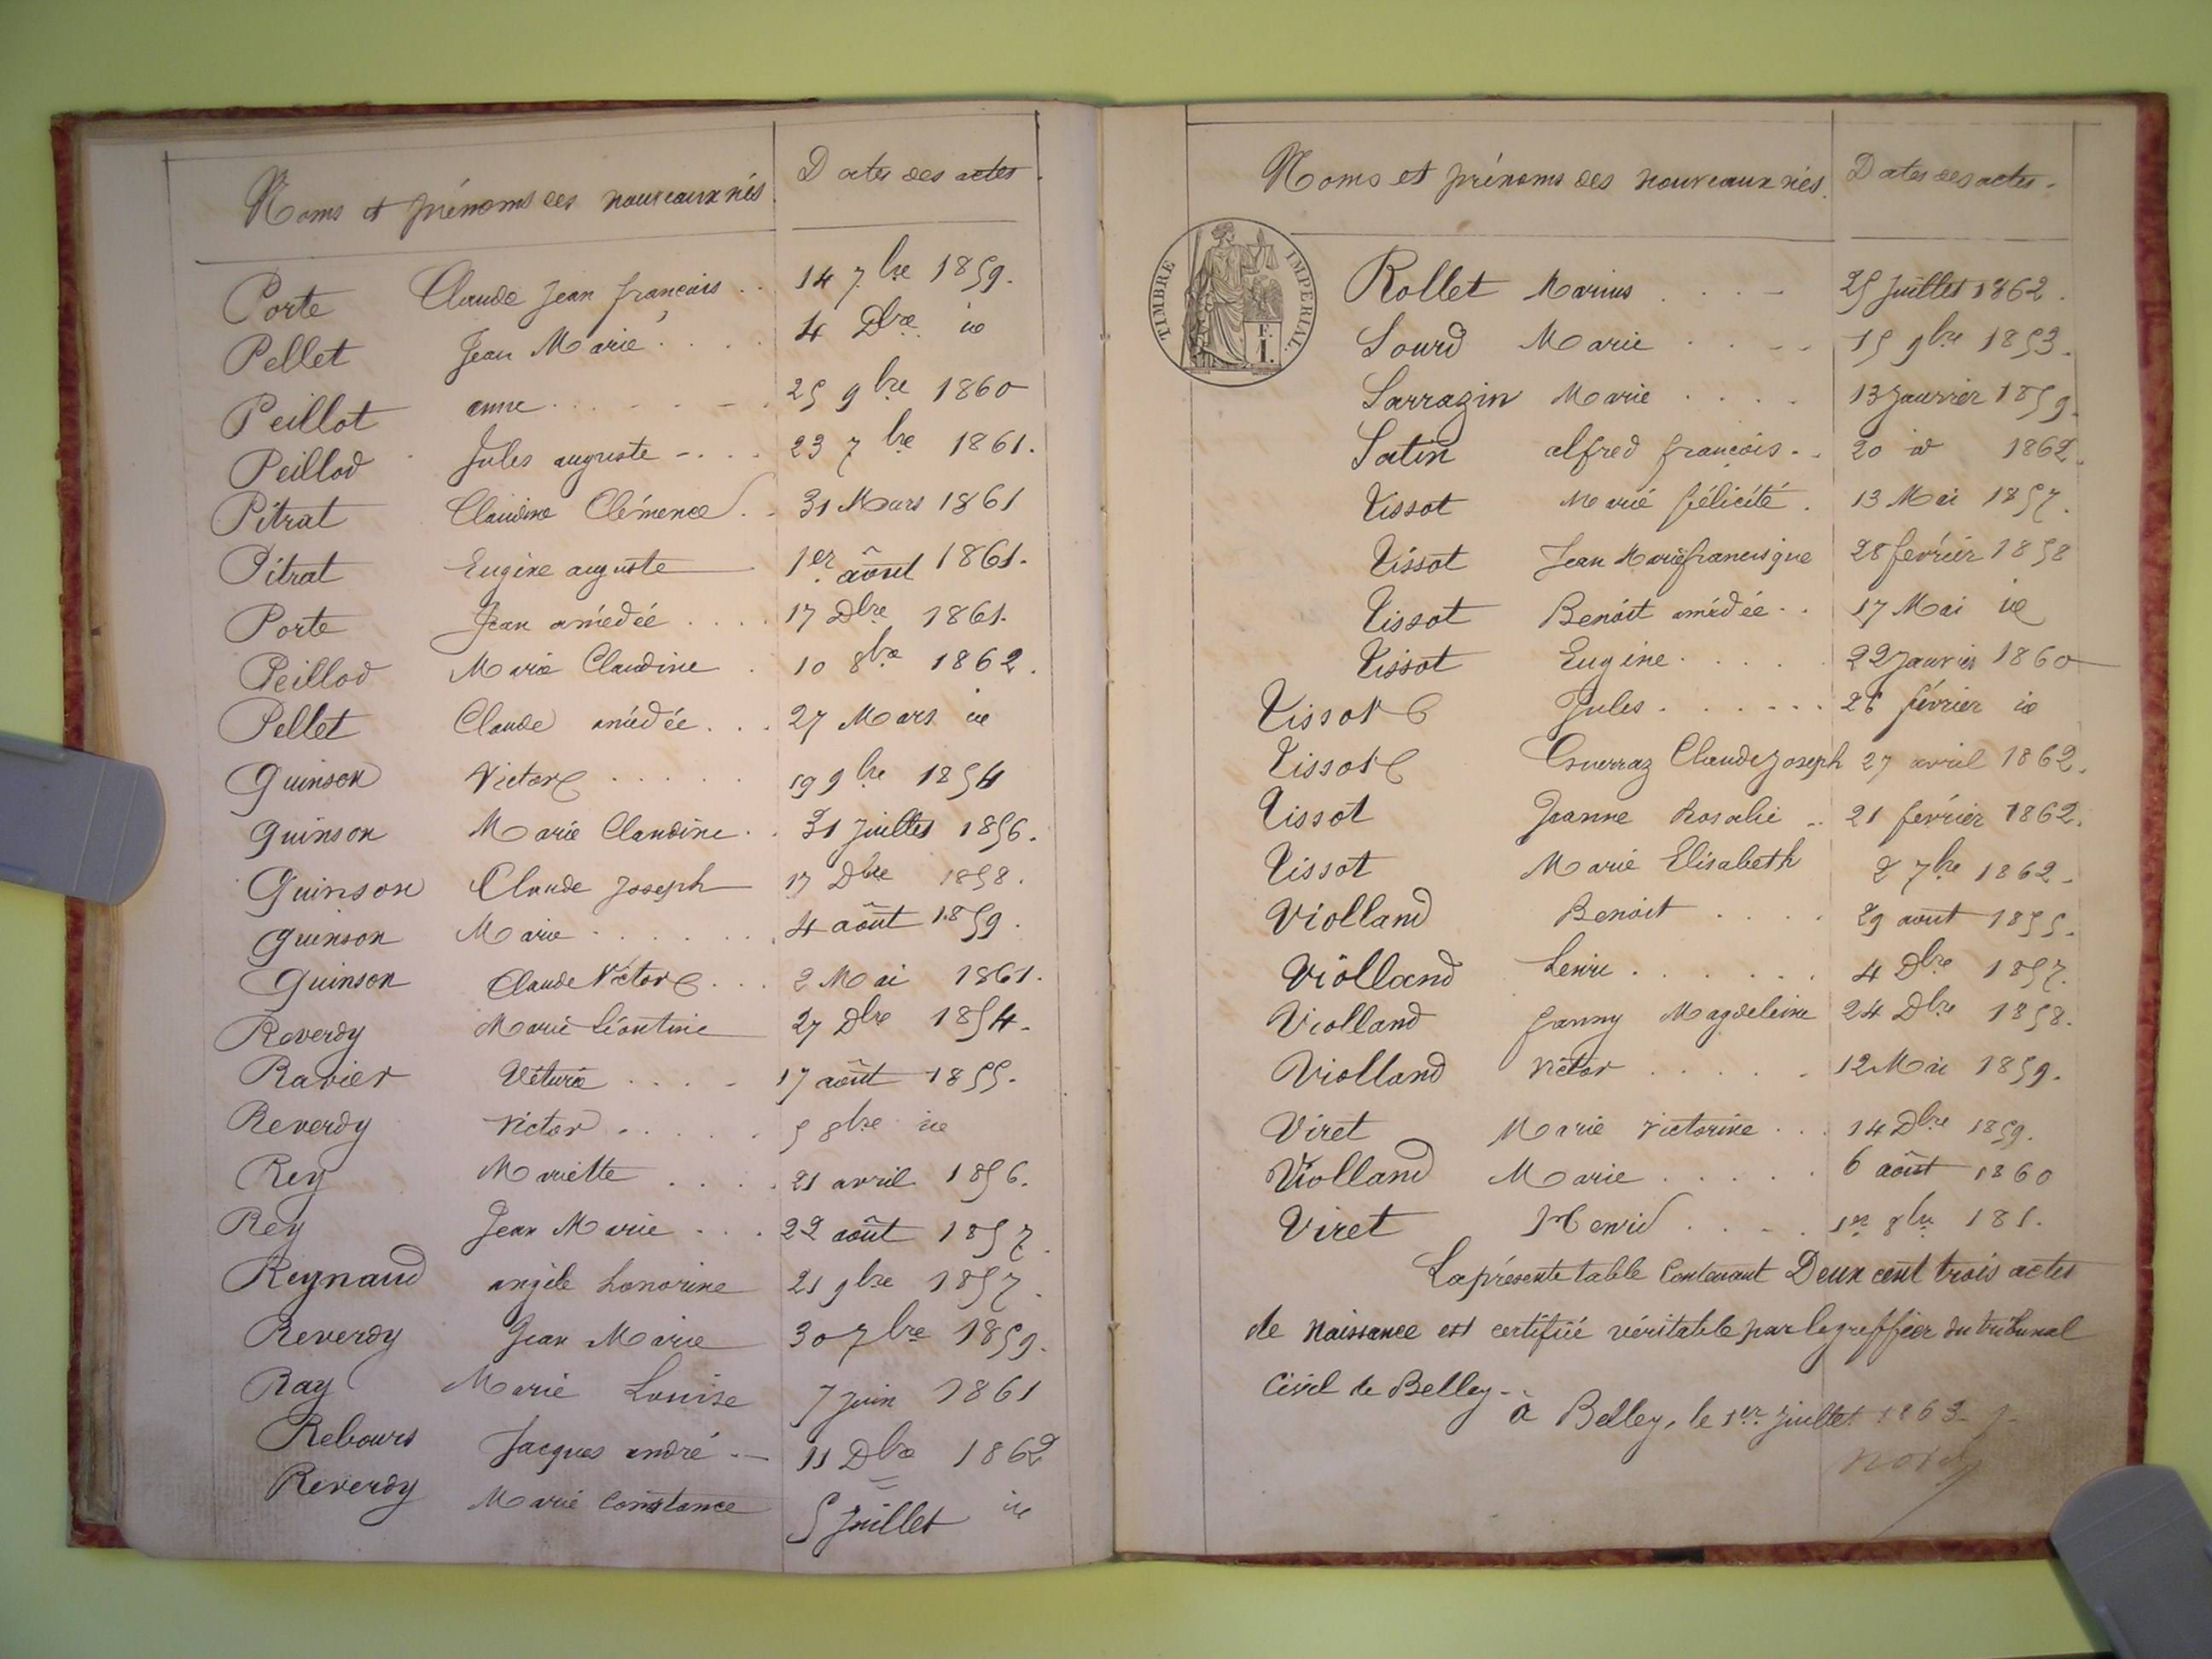 Noms et prénoms des nouveaux nés Dates des actes.
Porte Claude Jean françois . . 14 7bre 1859.
Pellet Jean Marie . . . . 4 Dbre id
Peillot anne . . . . - - . 25 9bre 1860
Peillod Jules auguste - . . . 23 7bre 1861.
Pitrat Claudine Clémence . . 31 Mars 1861
Pitrat Eugène auguste 1er août 1861.
Porte Jean amédée . . . . 17 Dbre 1861.
Peillod Marie Claudine . 10 8bre 1862.
Pellet Claude amédée . . . 27 Mars id
Quinson Victor . . . . . . 19 9bre 1854
Quinson Marie Claudine . . 31 Juillet 1856.
Quinson Claude Joseph 17 Dbre 1858.
Quinson Marie . . . . . . . 4 août 1859.
Quinson Claude Victor . . . 2 Mai 1861.
Reverdy Marie Léontine 27 Dbre 1854.
Ravier Véturie . . . - 17 août 1855.
Reverdy Victor . . . . . 5 8bre id
Rey Mariette . . . . 21 avril 1856.
Rey Jean Marie . . . 22 août 1857.
Reynaud angèle honorine 21 9bre 1857.
Reverdy Jean Marie 30 7bre 1859.
Ray Marie Louise 7 juin 1861
Rebours Jacques andré . - 11 Dbre 1862
Reverdy Marie Constance 5 Juillet id
Noms et prénoms des nouveaux nés. Dates des actes.
TIMBRE IMPERIAL.
F.
1.
Rollet Marius . . . - 25 Juillet 1862.
Sourd Marie . . - - 15 9bre 1853.
Sarrazin Marie . . . . 13 Janvier 1859.
Satin alfred françois . . 20 id 1862.
Tissot Marie félicité . 13 Mai 1857.
Tissot Jean Marie francisque 28 février 1858
Tissot Benoit amédée . . 17 Mai id
Tissot Eugène . . . . . 22 Janvier 1860
Tissot Jules . . . . . . 26 février id
Tissot Claude Joseph 27 avril 1862.
Tissot Jeanne Rosalie . . 21 février 1862.
Tissot Marie Elisabeth 2 7bre 1862.
Violland Benoit . . . . 29 août 1855.
Violland henri . . . . . . 4 Dbre 1857.
Violland fanny Magdeleine 24 Dbre 1858.
Violland Victor . . . . . 12 Mai 1859.
Viret Marie Victorine . . . 14 Dbre 1859.
Violland Marie . . . . . 6 août 1860
Viret Henri . . . . 1er 8bre 181.
La présente table Contenant Deux cent trois actes
de Naissance est certifiée véritable par le greffier du tribunal
Civil de Belley.
à Belley, le 1er Juillet 1863.